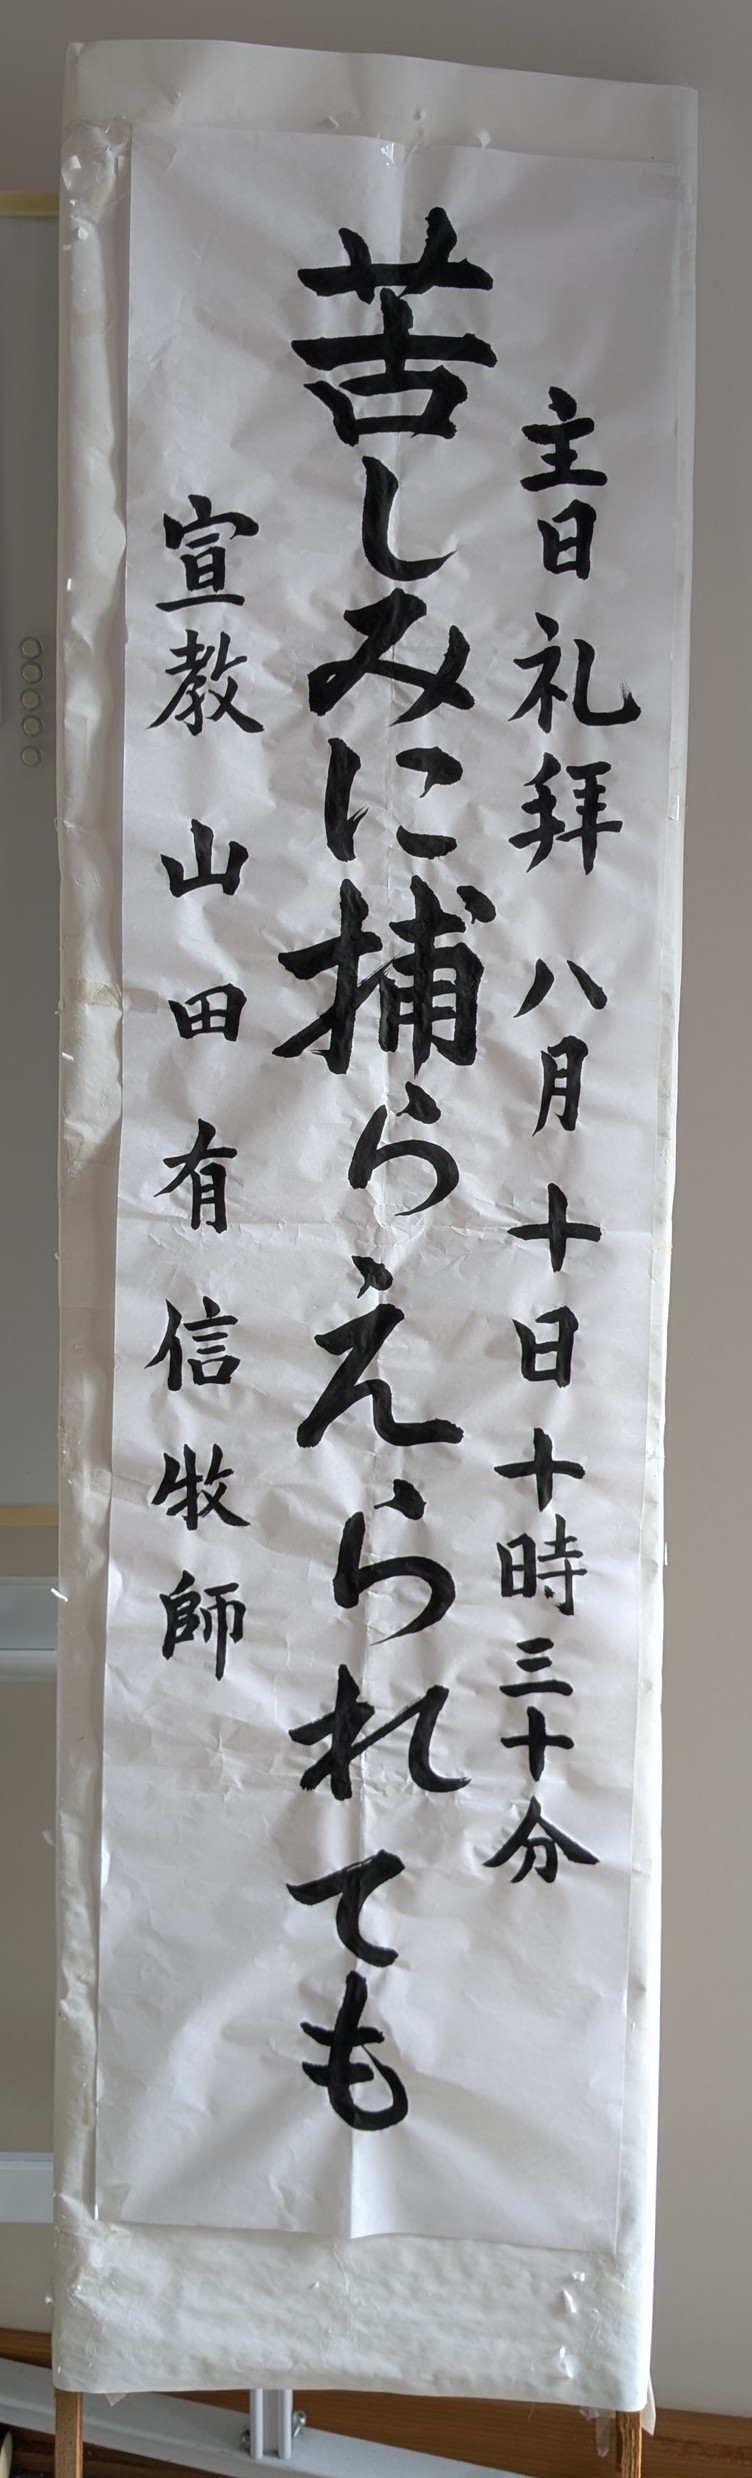 主日礼拝 八月十日十時三十分
苦しみに捕らえられても
宣教 山田有信牧師